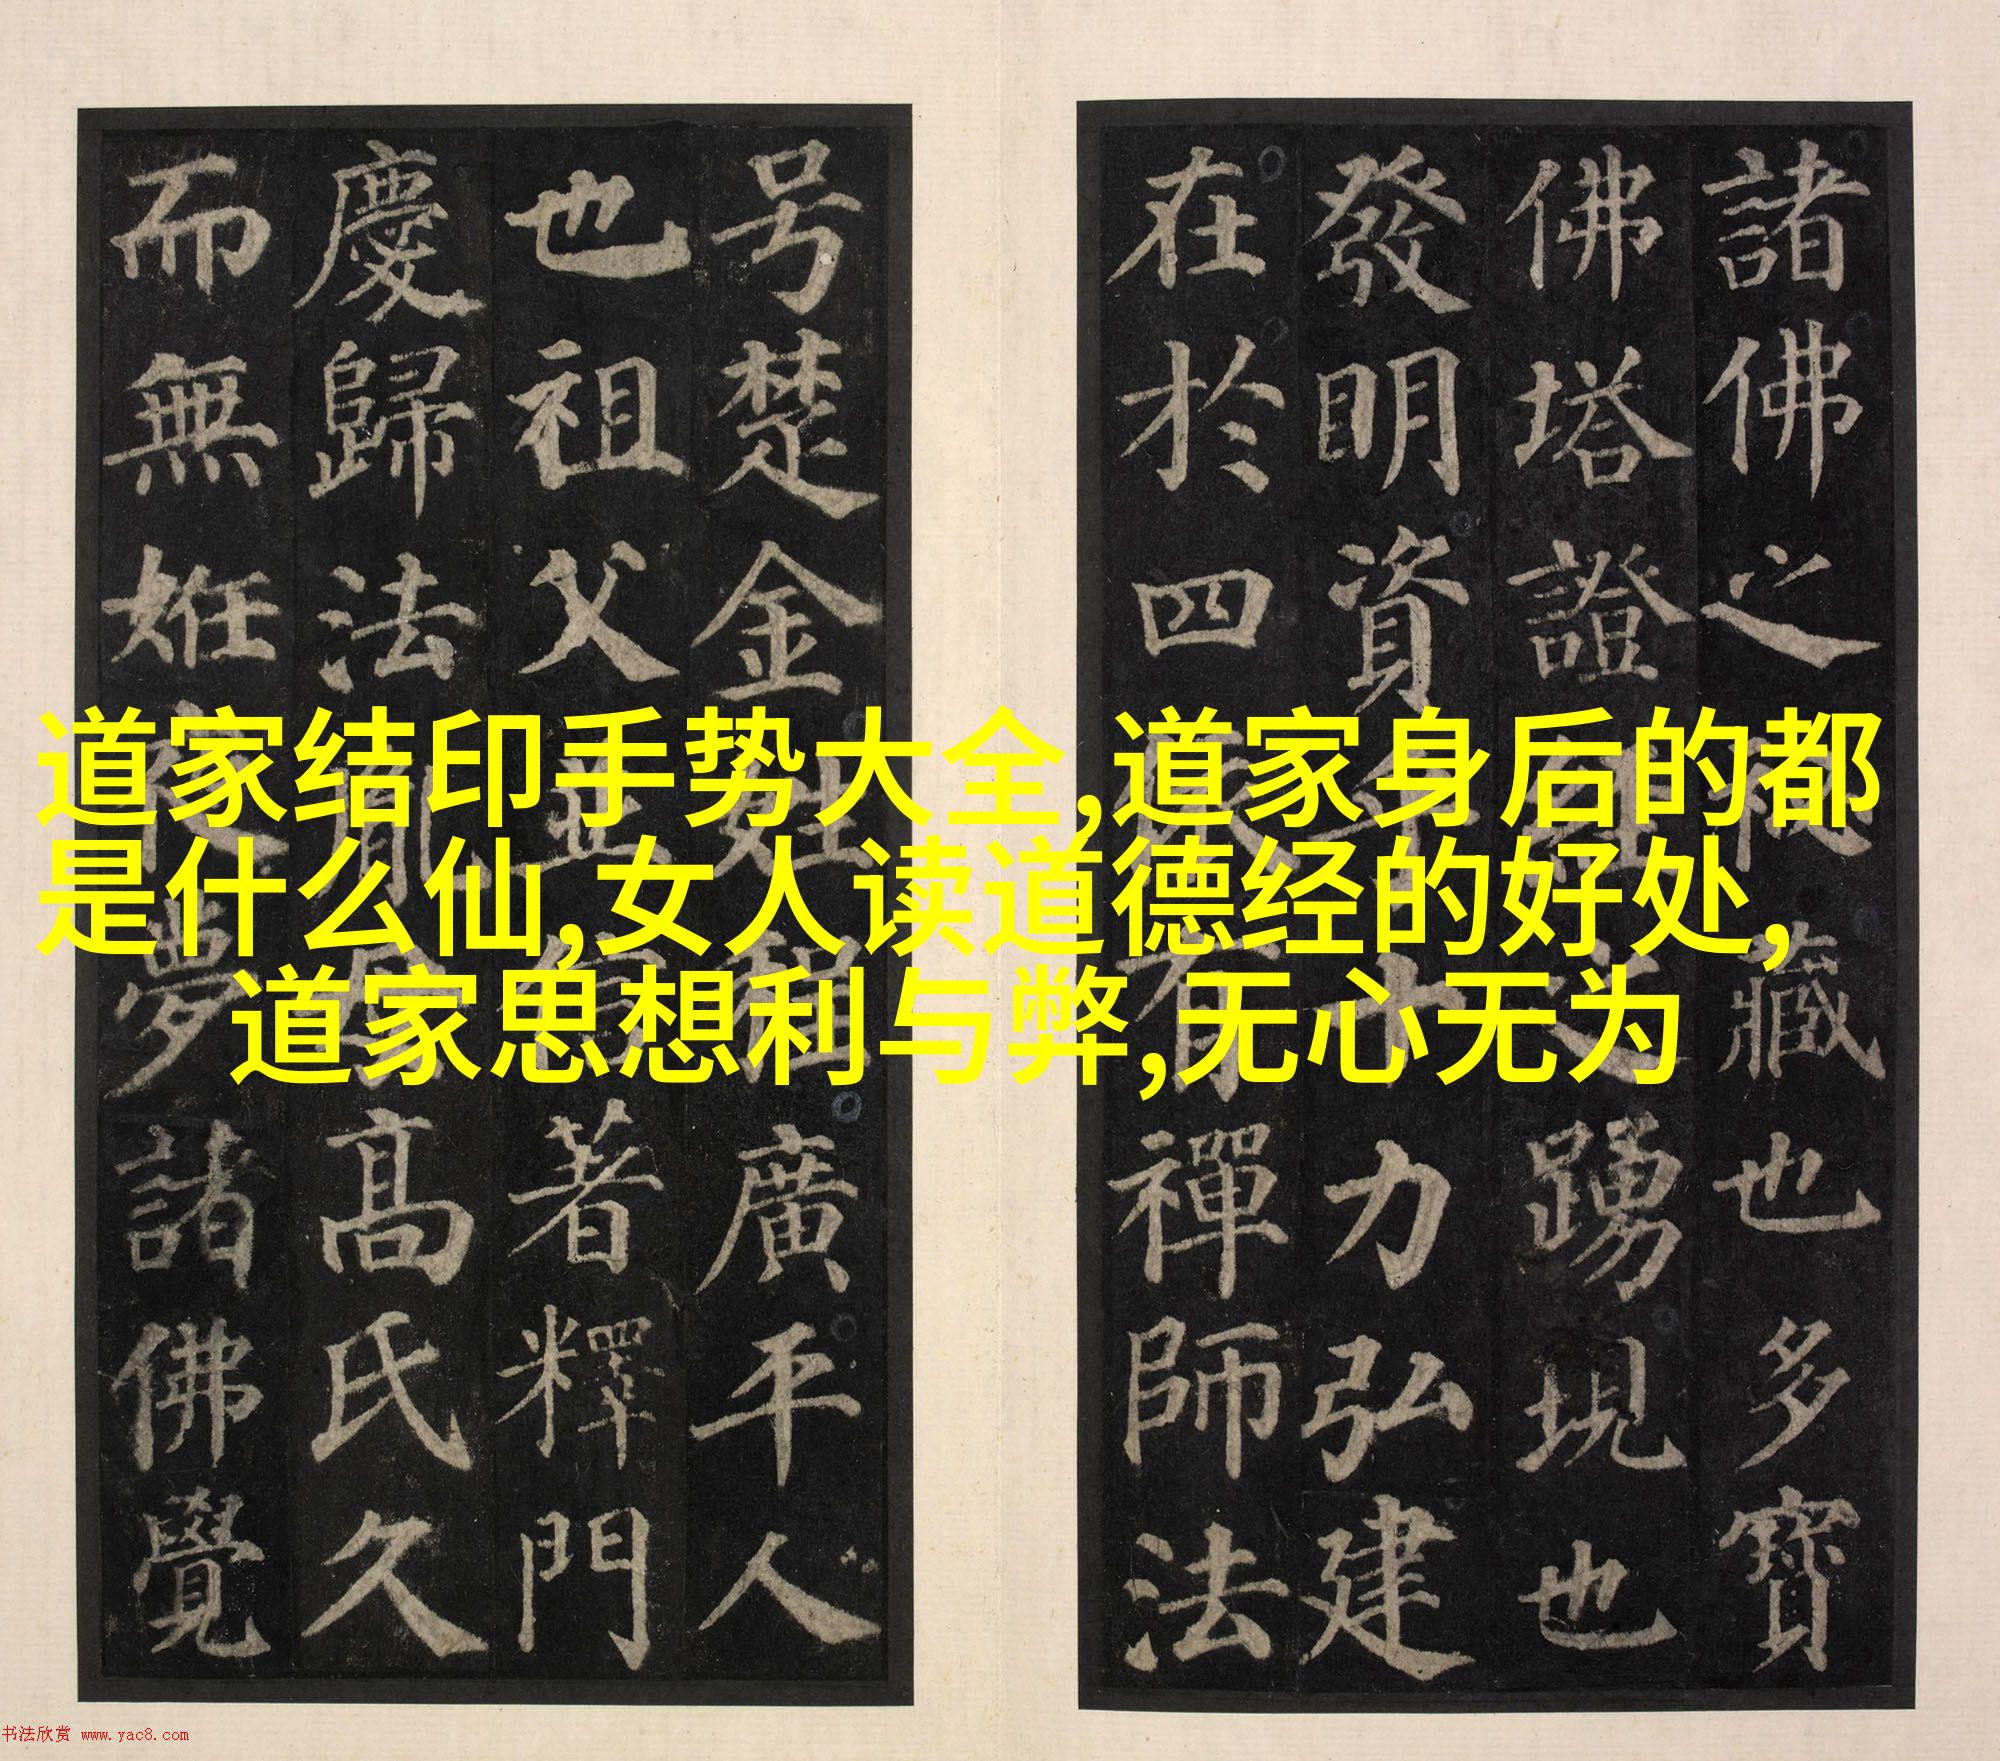 諸佛之藏也多寶
佛塔證經之踴現也
發明資乎十力弘建
在於四依有禪師法
号楚金姓程廣平人
也祖父並信著釋門
慶歸法胤母高氏久
而無姙夜夢諸佛覺
道家结印手势大全,道家身后的都
是什么仙,女人读道德经的好处,
道家思想利与弊,无心无为
书法欣赏 www.yac8.com